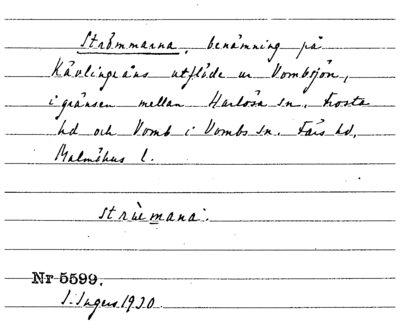 Strömmarna, benämning på
Kävlingeåns utflöde ur Vombsjön,
i gränsen mellan Harlösa sn. Frosta
hd och Vomb i Vombs sn. Färs hd.
Malmöhus l.
strùemana.
Nr 5599.
I. Ingers 1930.